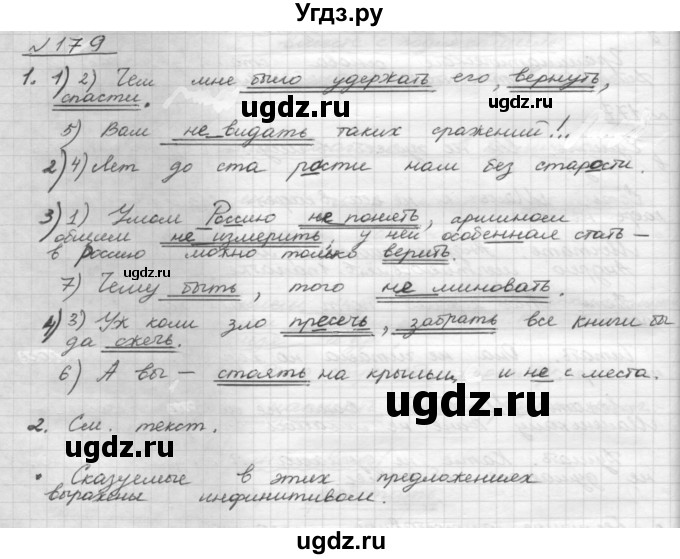 Угдз.ру
№179
1. 1) 2) Чем мне было удержать его, вернуть,
спасти.
5) Вам не видать таких сражений!..
2) 4) Лет до ста расти нам без старости.
3) 1) Умом Россию не понять, аршином
общим не измерить, у ней особенная стать –
в Россию можно только верить.
7) Чему быть, того не миновать.
4) 3) Уж коли зло пресечь, забрать все книги бы
да сжечь.
6) А вы – стоять на крыльц, и не с места.
2. См. текст.
• Сказуемые в этих предложениях
выражены инфинитивом.
ugdz.ru
ugdz.ru
ugdz.ru
ugdz.ru
ugdz.ru
ugdz.ru
ugdz.ru
ugdz.ru
ugdz.ru
Угдз.ру